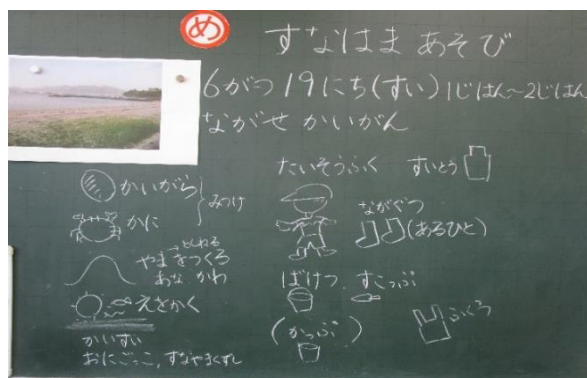 め
すなはま あそび
6がつ 19にち(すい) 1じはん~2じはん
ながせ かいがん
かいがら
かに
みつけ
やまをつくろ
あな かわ
えをかく
かいすい
おにごっこ,すなやまくずし
たいそうふく すいとう
ながぐつ
(あるひと)
ばけつ. すこっぷ
(かっぷ)
ふくろ